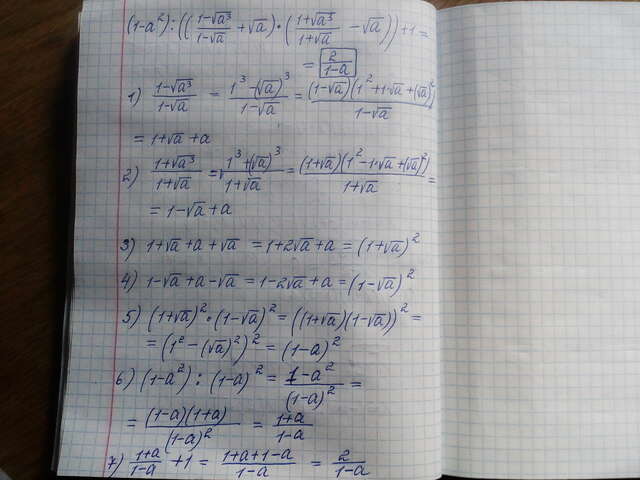 (1-a²):((1-√a³/1-√a + √a)·(1+√a³/1+√a - √a))+1=
= 2/1-a
1) 1-√a³/1-√a = 1³-(√a)³/1-√a = (1-√a)(1²+1·√a+(√a)²)/1-√a
= 1+√a+a
2) 1+√a³/1+√a = 1³+(√a)³/1+√a = (1+√a)(1²-1·√a+(√a)²)/1+√a =
= 1-√a+a
3) 1+√a+a+√a = 1+2√a+a = (1+√a)²
4) 1-√a+a-√a = 1-2√a+a = (1-√a)²
5) (1+√a)²·(1-√a)² = ((1+√a)(1-√a))² =
= (1²-(√a)²)² = (1-a)²
6) (1-a²):(1-a)² = 1-a²/(1-a)² =
= (1-a)(1+a)/(1-a)² = 1+a/1-a
7) 1+a/1-a +1 = 1+a+1-a/1-a = 2/1-a